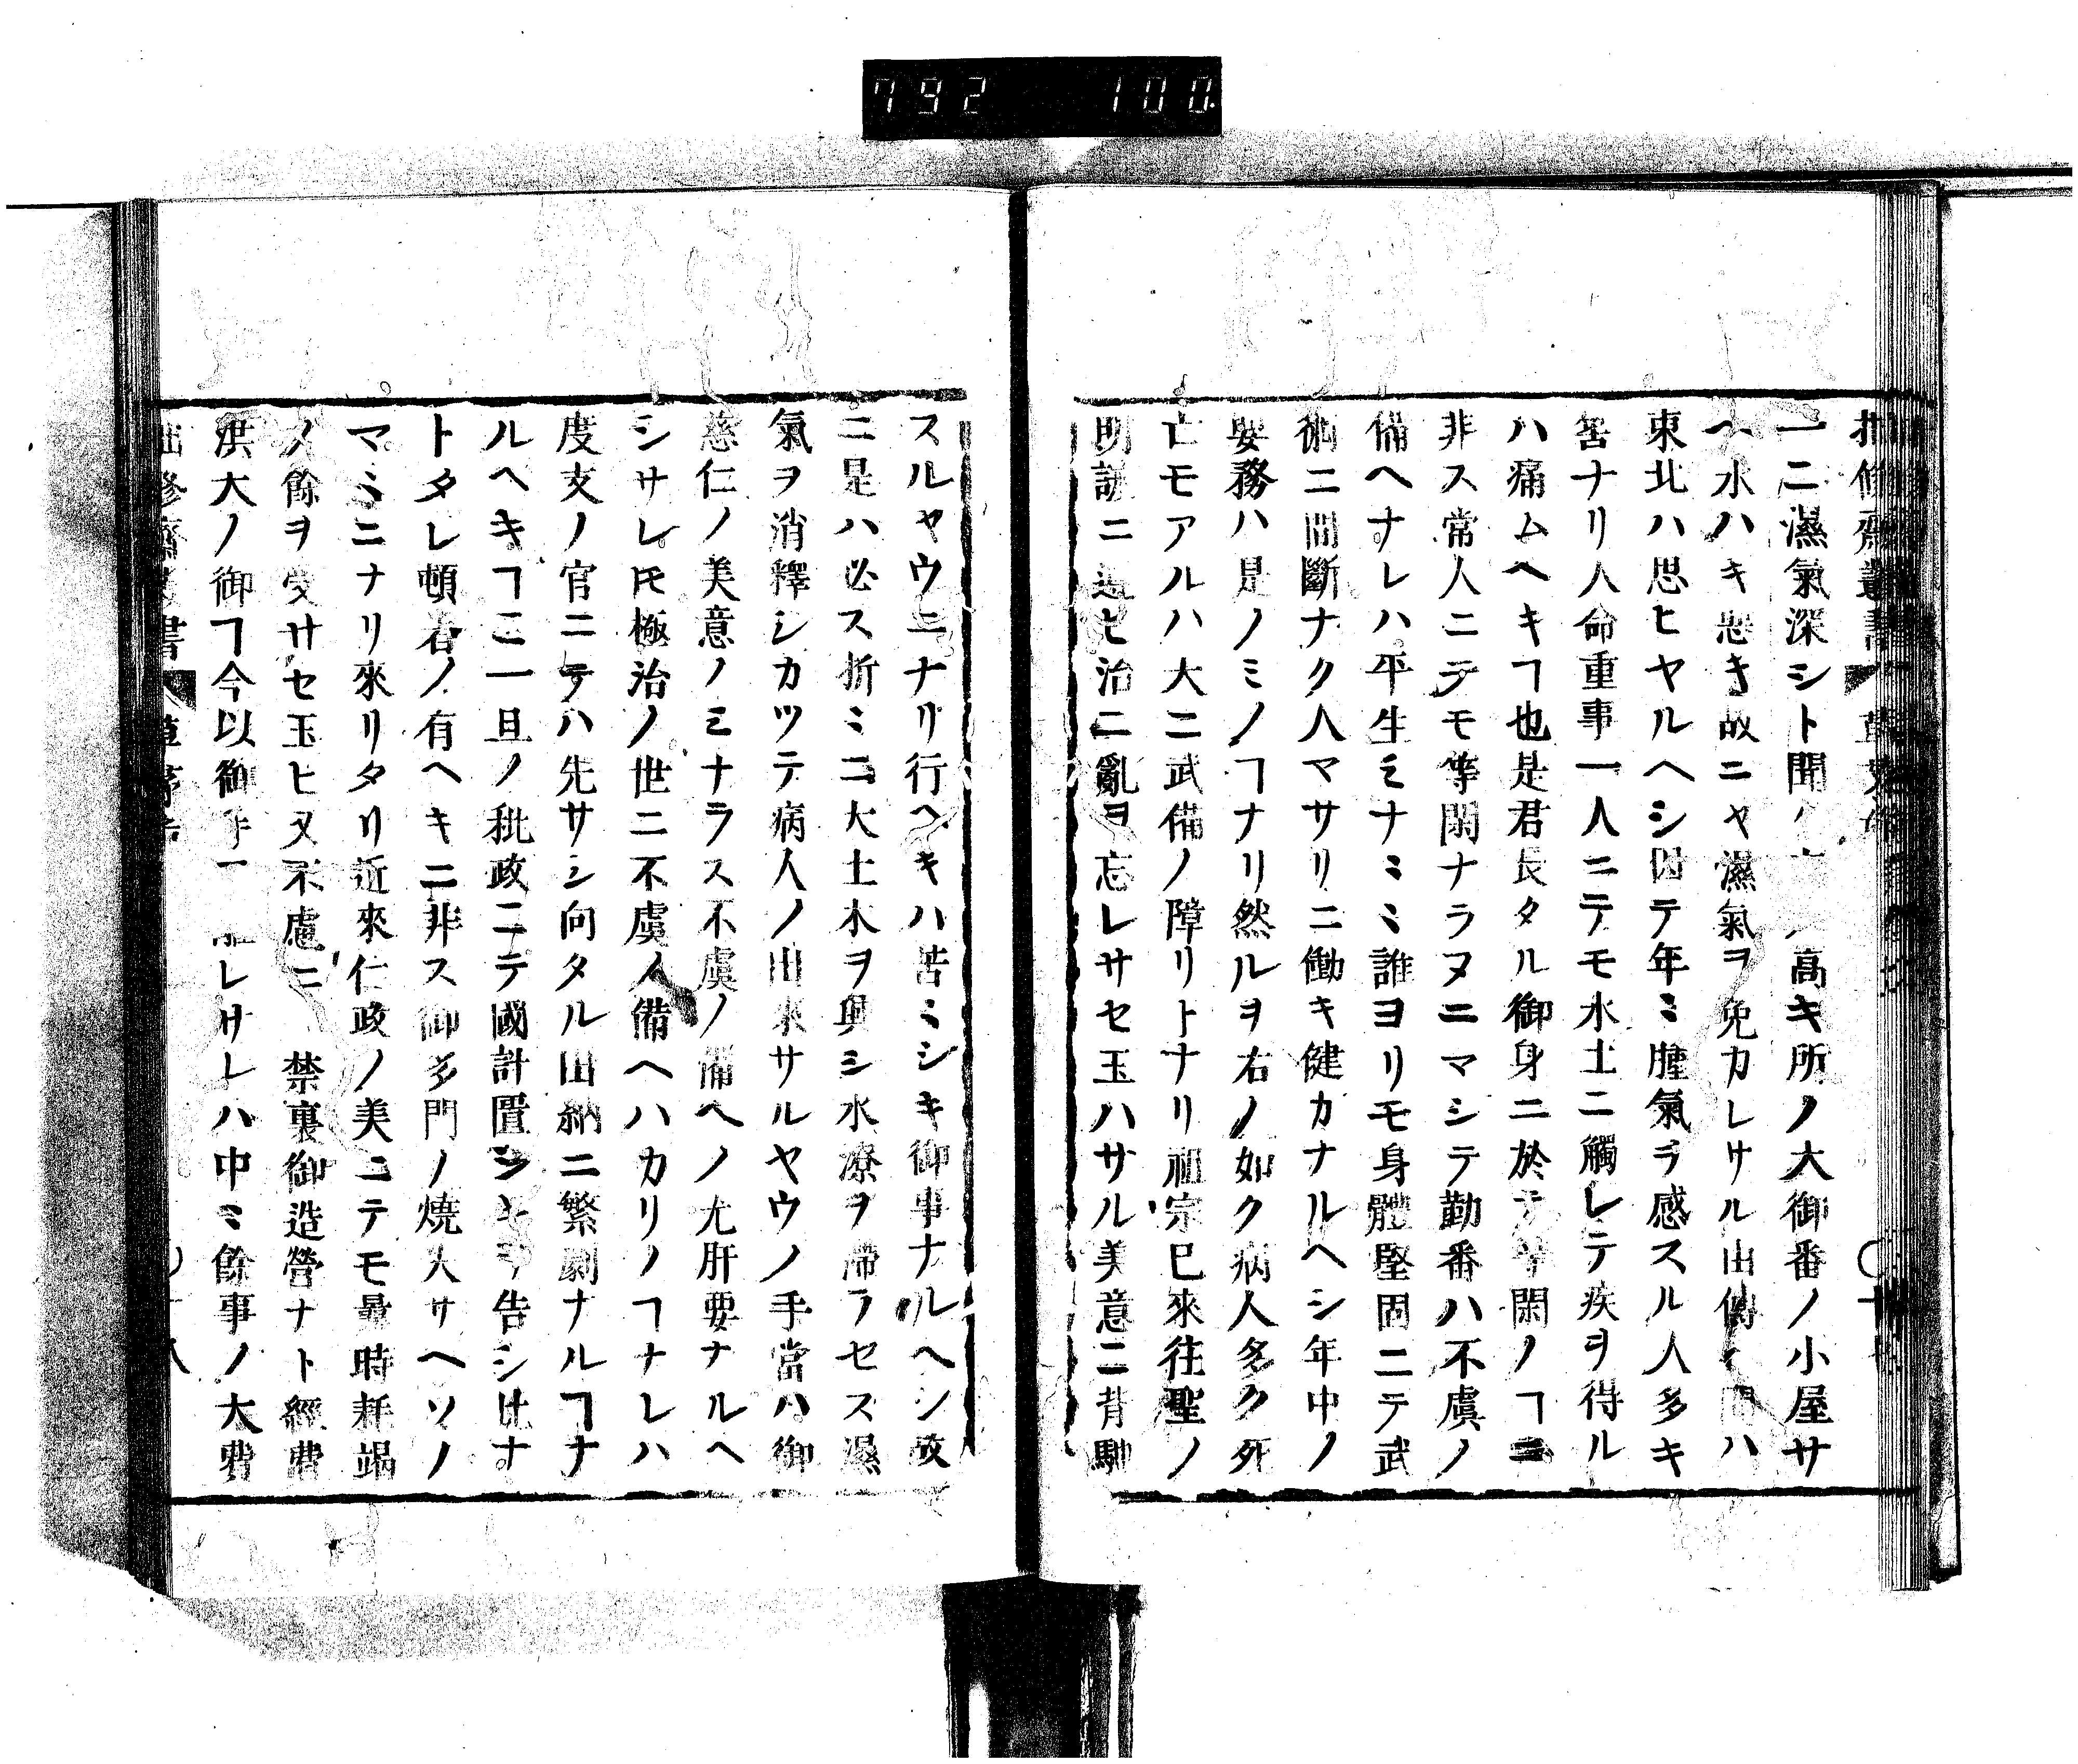 792 100
一ニ濕氣深シト聞 高キ所ノ大御番ノ小屋サ
ヘ水ハキ悪キ故ニヤ濕氣ヲ免カレサル由傳 聞ハ
東北ハ思ヒヤルヘシ因テ年ミ腫氣ヲ感スル人多キ
筈ナリ人命重事一人ニテモ水土ニ觸レテ疾ヲ得ル
ハ痛ムヘキヿ也是君長タル御身ニ於テ等閑ノヿニ
非ス常人ニテモ等閑ナラヌニマシテ勤番ハ不虞ノ
備ヘナレハ平生ミナミミ誰ヨリモ身體堅固ニテ武
術ニ間斷ナク人マサリニ働キ健カナルヘシ年中ノ
要務ハ是ノミノヿナリ然ルヲ右ノ如ク病人多ク死
亡モアルハ大ニ武備ノ障リトナリ祖宗已來往聖ノ
明謨ニ違ヒ治ニ亂ヲ忘レサセ玉ハサル美意ニ背馳
スルヤウニナリ行ヘキハ苦ミシキ御事ナルヘシ故
ニ是ハ必ス折ミニ大土木ヲ興シ水潦ヲ滯ラセス濕
氣ヲ消釋シカツテ病人ノ出來サルヤウノ手當ハ御
慈仁ノ美意ノミナラス不虞ノ備ヘノ尤肝要ナルヘ
シサレ𪜈極治ノ世ニ不虞ノ備ヘハカリノヿナレハ
度支ノ官ニテハ先サシ向タル出納ニ繁劇ナルヿナ
ルヘキヿニ一旦ノ秕政ニテ國計置シキヲ告シ比ナ
トタレ頓着ノ有ヘキニ非ス御多門ノ燒失サヘソノ
マミニナリ來リタリ近來仁政ノ美ニテモ曩時耗竭
ノ餘ヲ受サセ玉ヒ又不慮ニ 禁裏御造營ナト經費
洪大ノ御ヿ今以御手一 レサレハ中ミ餘事ノ大費